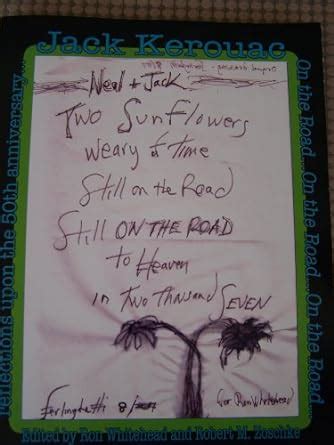 Jack Kerouac
On the Road... On the Road... On the Road...
reflections upon the 50th anniversary...
Neal + Jack
Two Sunflowers
weary of time
Still on the Road
Still ON THE ROAD
to Heaven
in Two Thousand SEVEN
Ferlinghetti 8/
for Ron Whitehead
Edited by Ron Whitehead and Robert M. Zoschke